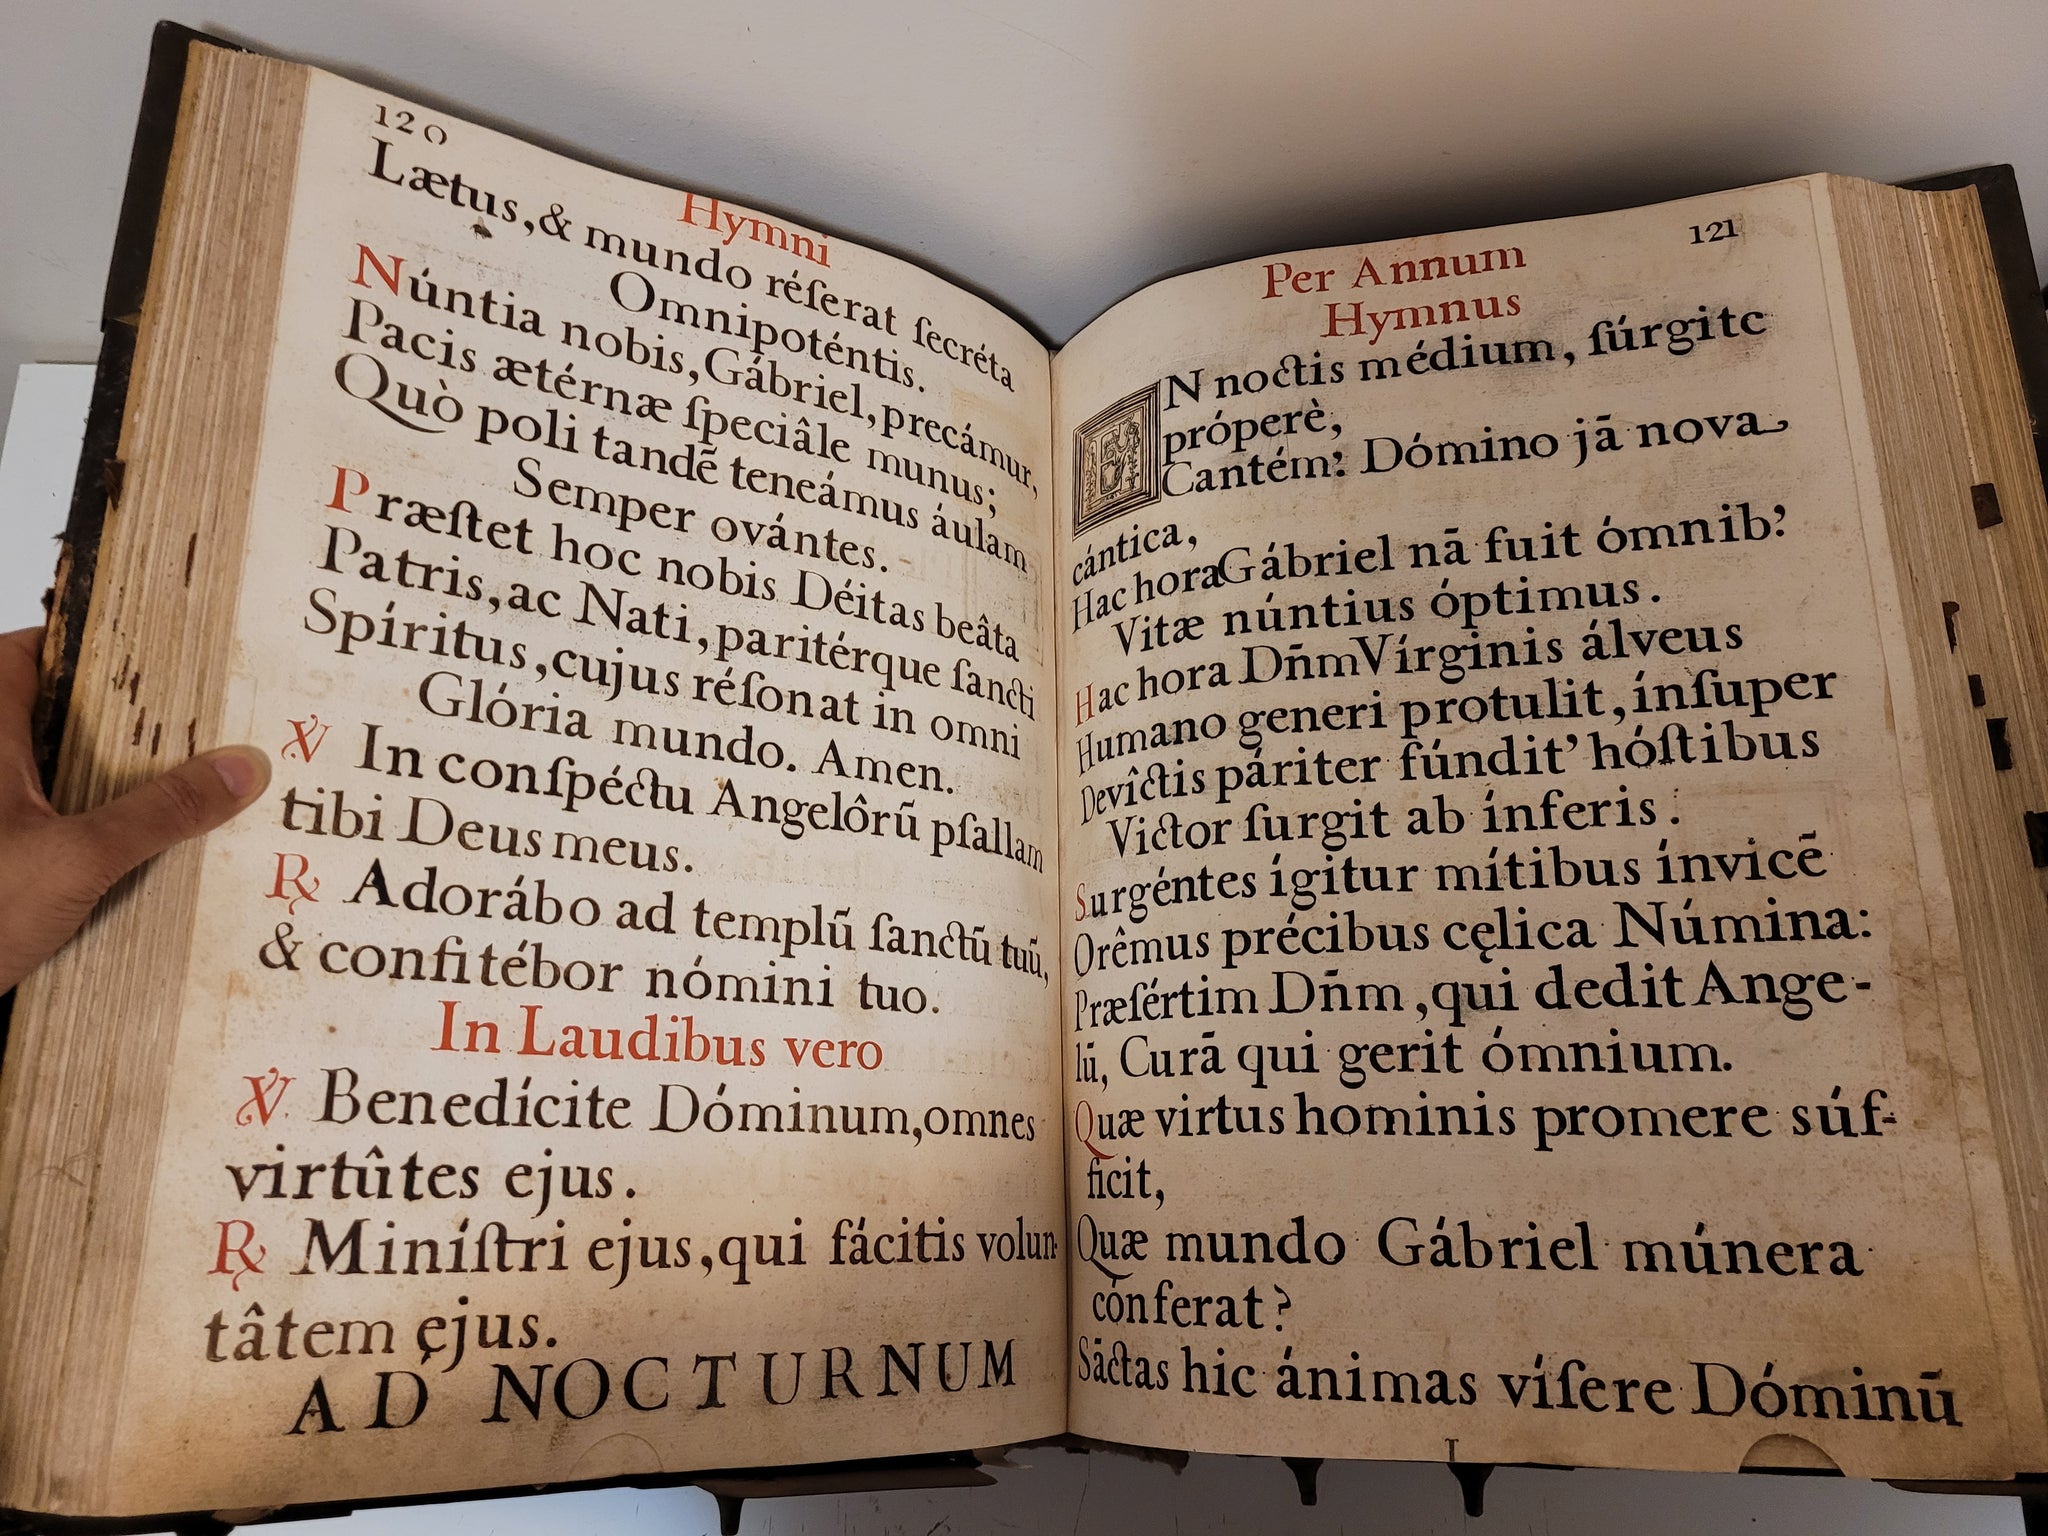 120
Hymni
Lætus, & mundo réſerat ſecréta
Omnipoténtis.
Núntia nobis, Gábriel, precámur,
Pacis ætérnæ ſpeciâle munus;
Quò poli tandē teneámus áulam
Semper ovántes.
Præſtet hoc nobis Déitas beâta
Patris, ac Nati, paritérque ſancti
Spíritus, cujus réſonat in omni
Glória mundo. Amen.
℣ In conſpéctu Angelôrū pſallam
tibi Deus meus.
℟ Adorábo ad templū ſanctū tuū,
& confitébor nómini tuo.
In Laudibus vero
℣. Benedícite Dóminum, omnes
virtûtes ejus.
℟ Miníſtri ejus, qui fácitis volun-
tâtem ejus.
AD NOCTURNUM
121
Per Annum
Hymnus
EN noctis médium, ſúrgite
próperè,
Cantém’: Dómino jā nova
cántica,
Hac hora Gábriel nā fuit ómnib’:
Vitæ núntius óptimus.
Hac hora Dn̄m Vírginis álveus
Humano generi protulit, ínſuper
Devîctis páriter fúndit’ hóſtibus
Victor ſurgit ab ínferis.
Surgéntes ígitur mítibus ínvicē
Orêmus précibus cęlica Númina:
Præſértim Dn̄m, qui dedit Ange-
lū, Curā qui gerit ómnium.
Quæ virtus hominis promere súf-
ficit,
Quæ mundo Gábriel múnera
cónferat?
Sāctas hic ánimas víſere Dóminū